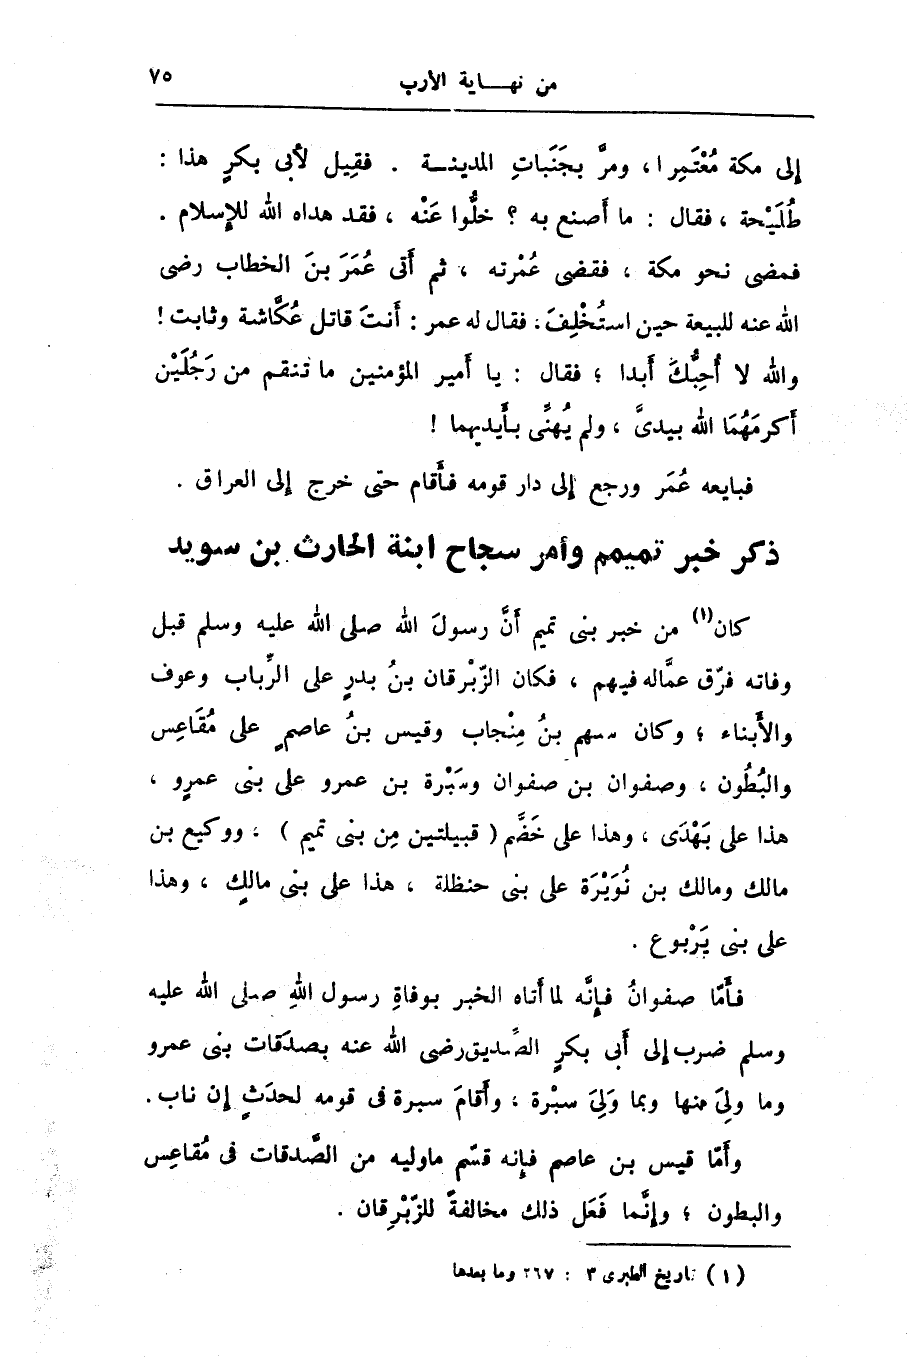 من نهاية الأرب ٧٥
إلى مكة مُعْتَمِرا، ومرَّ بجَنَباتِ المدينة . فقِيل لأبى بكرٍ هذا :
طُلَيْحة ، فقال : ما أصنع به ؟ خلُّوا عَنْه ، فقد هداه الله للإسلام .
فمضى نحو مكة ، فقضى عُمْرته ، ثم أتى عُمَرَ بنَ الخطاب رضى
الله عنه للبيعة حين استُخْلِفَ، فقال له عمر : أنتَ قاتل عُكَّاشة وثابت !
والله لا أُحِبُّكَ أبدا ؛ فقال : يا أمير المؤمنين ما تنقم من رَجُلَيْن
أكرمَهُمَا الله بيدىَّ ، ولم يُهنِّى بأيديهما !
فبايعه عُمَر ورجع إلى دار قومه فأقام حتى خرج إلى العراق .
ذكر خبر تميمم وأمر سجاح ابنة الحارث بن سويد
كان(١) من خبر بنى تميم أنَّ رسولَ الله صلى الله عليه وسلم قبل
وفاته فرّق عمَّاله فيهم ، فكان الزّبْرقان بنُ بدرٍ على الرِّباب وعوف
والأَبناء ؛ وكان سهم بنُ مِنْجاب وقيس بنُ عاصمٍ على مُقَاعِس
والبُطُون ، وصفوان بن صفوان وسَبْرة بن عمرو على بنى عمرٍو ،
هذا على بَهْدَى ، وهذا على خَضَّم ( قبيلتين مِن بنى تميم ) ، ووكيع بن
مالك ومالك بن نُوَيْرَة على بنى حنظلة ، هذا على بنى مالكٍ ، وهذا
على بنى يَرْبوع .
فأَمّا صفوانُ فإنَّه لما أتاه الخبر بوفاةِ رسول اللهِ صلى الله عليه
وسلم ضرب إلى أبى بكرٍ الصّديق رضى الله عنه بصدَقات بنى عمرو
وما ولِىَ منها وبما وَلِىَ سبْرة ، وأقامَ سبرة فى قومه لحدَثٍ إن ناب .
وأمّا قيس بن عاصم فإنه قسّم ماوليه من الصَّدقات فى مُقاعِس
والبطون ؛ وإنَّما فَعَل ذلك مخالفةً للزّبْرِقان .
( ١ ) تاريخ الطبرى ٣ : ٢٦٧ وما بعدها